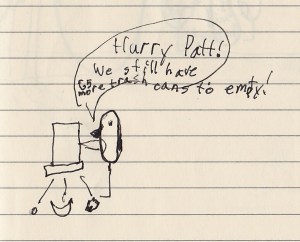 Hurry Patt!
We still have
65 more trash cans to empty!